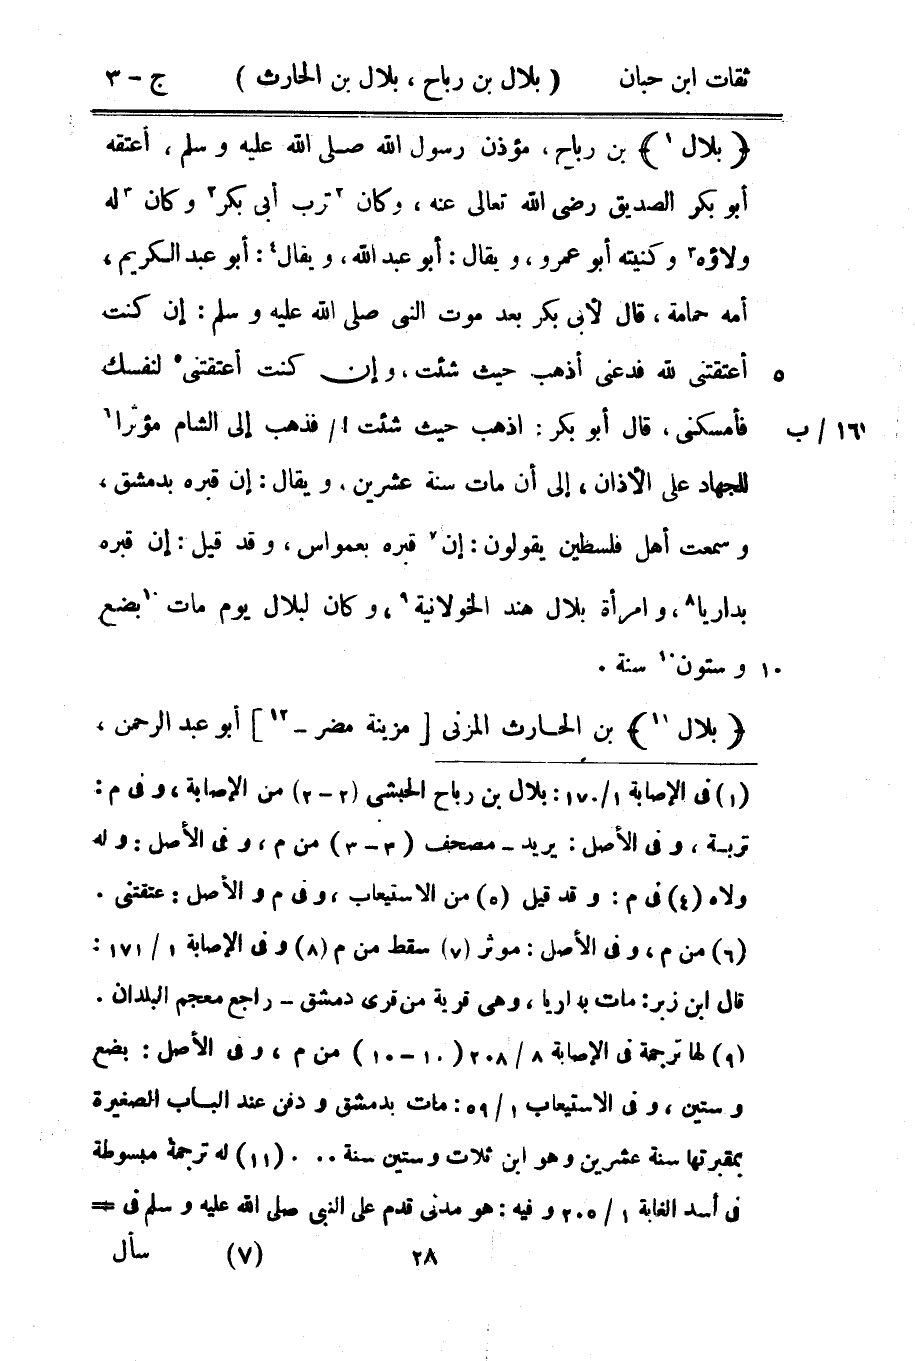 ثقات ابن حبان ( بلال بن رباح ، بلال بن الحارث ) ج - ٣
﴿ بلال ١ ﴾ بن رباح ، مؤذن رسول الله صلى الله عليه و سلم ، أعتقه
أبو بكر الصديق رضى الله تعالى عنه ، وكان ٢ ترب أبى بكر ٢ وكان ٣ له
ولاؤه ٣ وكنيته أبو عمرو ، و يقال : أبو عبد الله ، و يقال ٤ : أبو عبد الكريم ،
أمه حمامة ، قال لأبى بكر بعد موت النبى صلى الله عليه و سلم : إن كنت
٥ أعتقتنى لله فدعنى أذهب حيث شئت ، و إن كنت أعتقتنى ٥ لنفسك
١٦١ / ب فأمسكنى ، قال أبو بكر : اذهب حيث شئت / فذهب إلى الشام مؤثرا ٦
للجهاد على الأذان ، إلى أن مات سنة عشرين ، و يقال : إن قبره بدمشق ،
و سمعت أهل فلسطين يقولون : إن ٧ قبره بعمواس ، و قد قيل : إن قبره
بداريا ٨ ، و امرأة بلال هند الخولانية ٩ ، و كان لبلال يوم مات ١٠ بضع
١٠ و ستون ١٠ سنة .
﴿ بلال ١١ ﴾ بن الحارث المزنى [ مزينة مضر - ١٢ ] أبو عبد الرحمن ،
(١) فى الإصابة ١٧٠/١ : بلال بن رباح الحبشى (٢ - ٢) من الإصابة ، و فى م :
تربة ، و فى الأصل : يريد - مصحف (٣ - ٣) من م ، و فى الأصل : و له
ولاه (٤) فى م : و قد قيل (٥) من الاستيعاب ، و فى م و الأصل : عتقتنى .
(٦) من م ، و فى الأصل : موثر (٧) سقط من م (٨) و فى الإصابة ١ / ١٧١ :
قال ابن زبر : مات بداريا ، وهى قرية من قرى دمشق - راجع معجم البلدان .
(٩) لها ترجمة فى الإصابة ٨ / ٢٠٨ (١٠ - ١٠) من م ، و فى الأصل : بضع
و ستين ، و فى الاستيعاب ١ / ٥٩ : مات بدمشق و دفن عند الباب الصغيرة
بمقبرتها سنة عشرين و هو ابن ثلاث و ستين سنة .. . (١١) له ترجمة مبسوطة
فى أسد الغابة ١ / ٢٠٥ و فيه : هو مدنى قدم على النبى صلى الله عليه و سلم فى =
٢٨ (٧) سأل